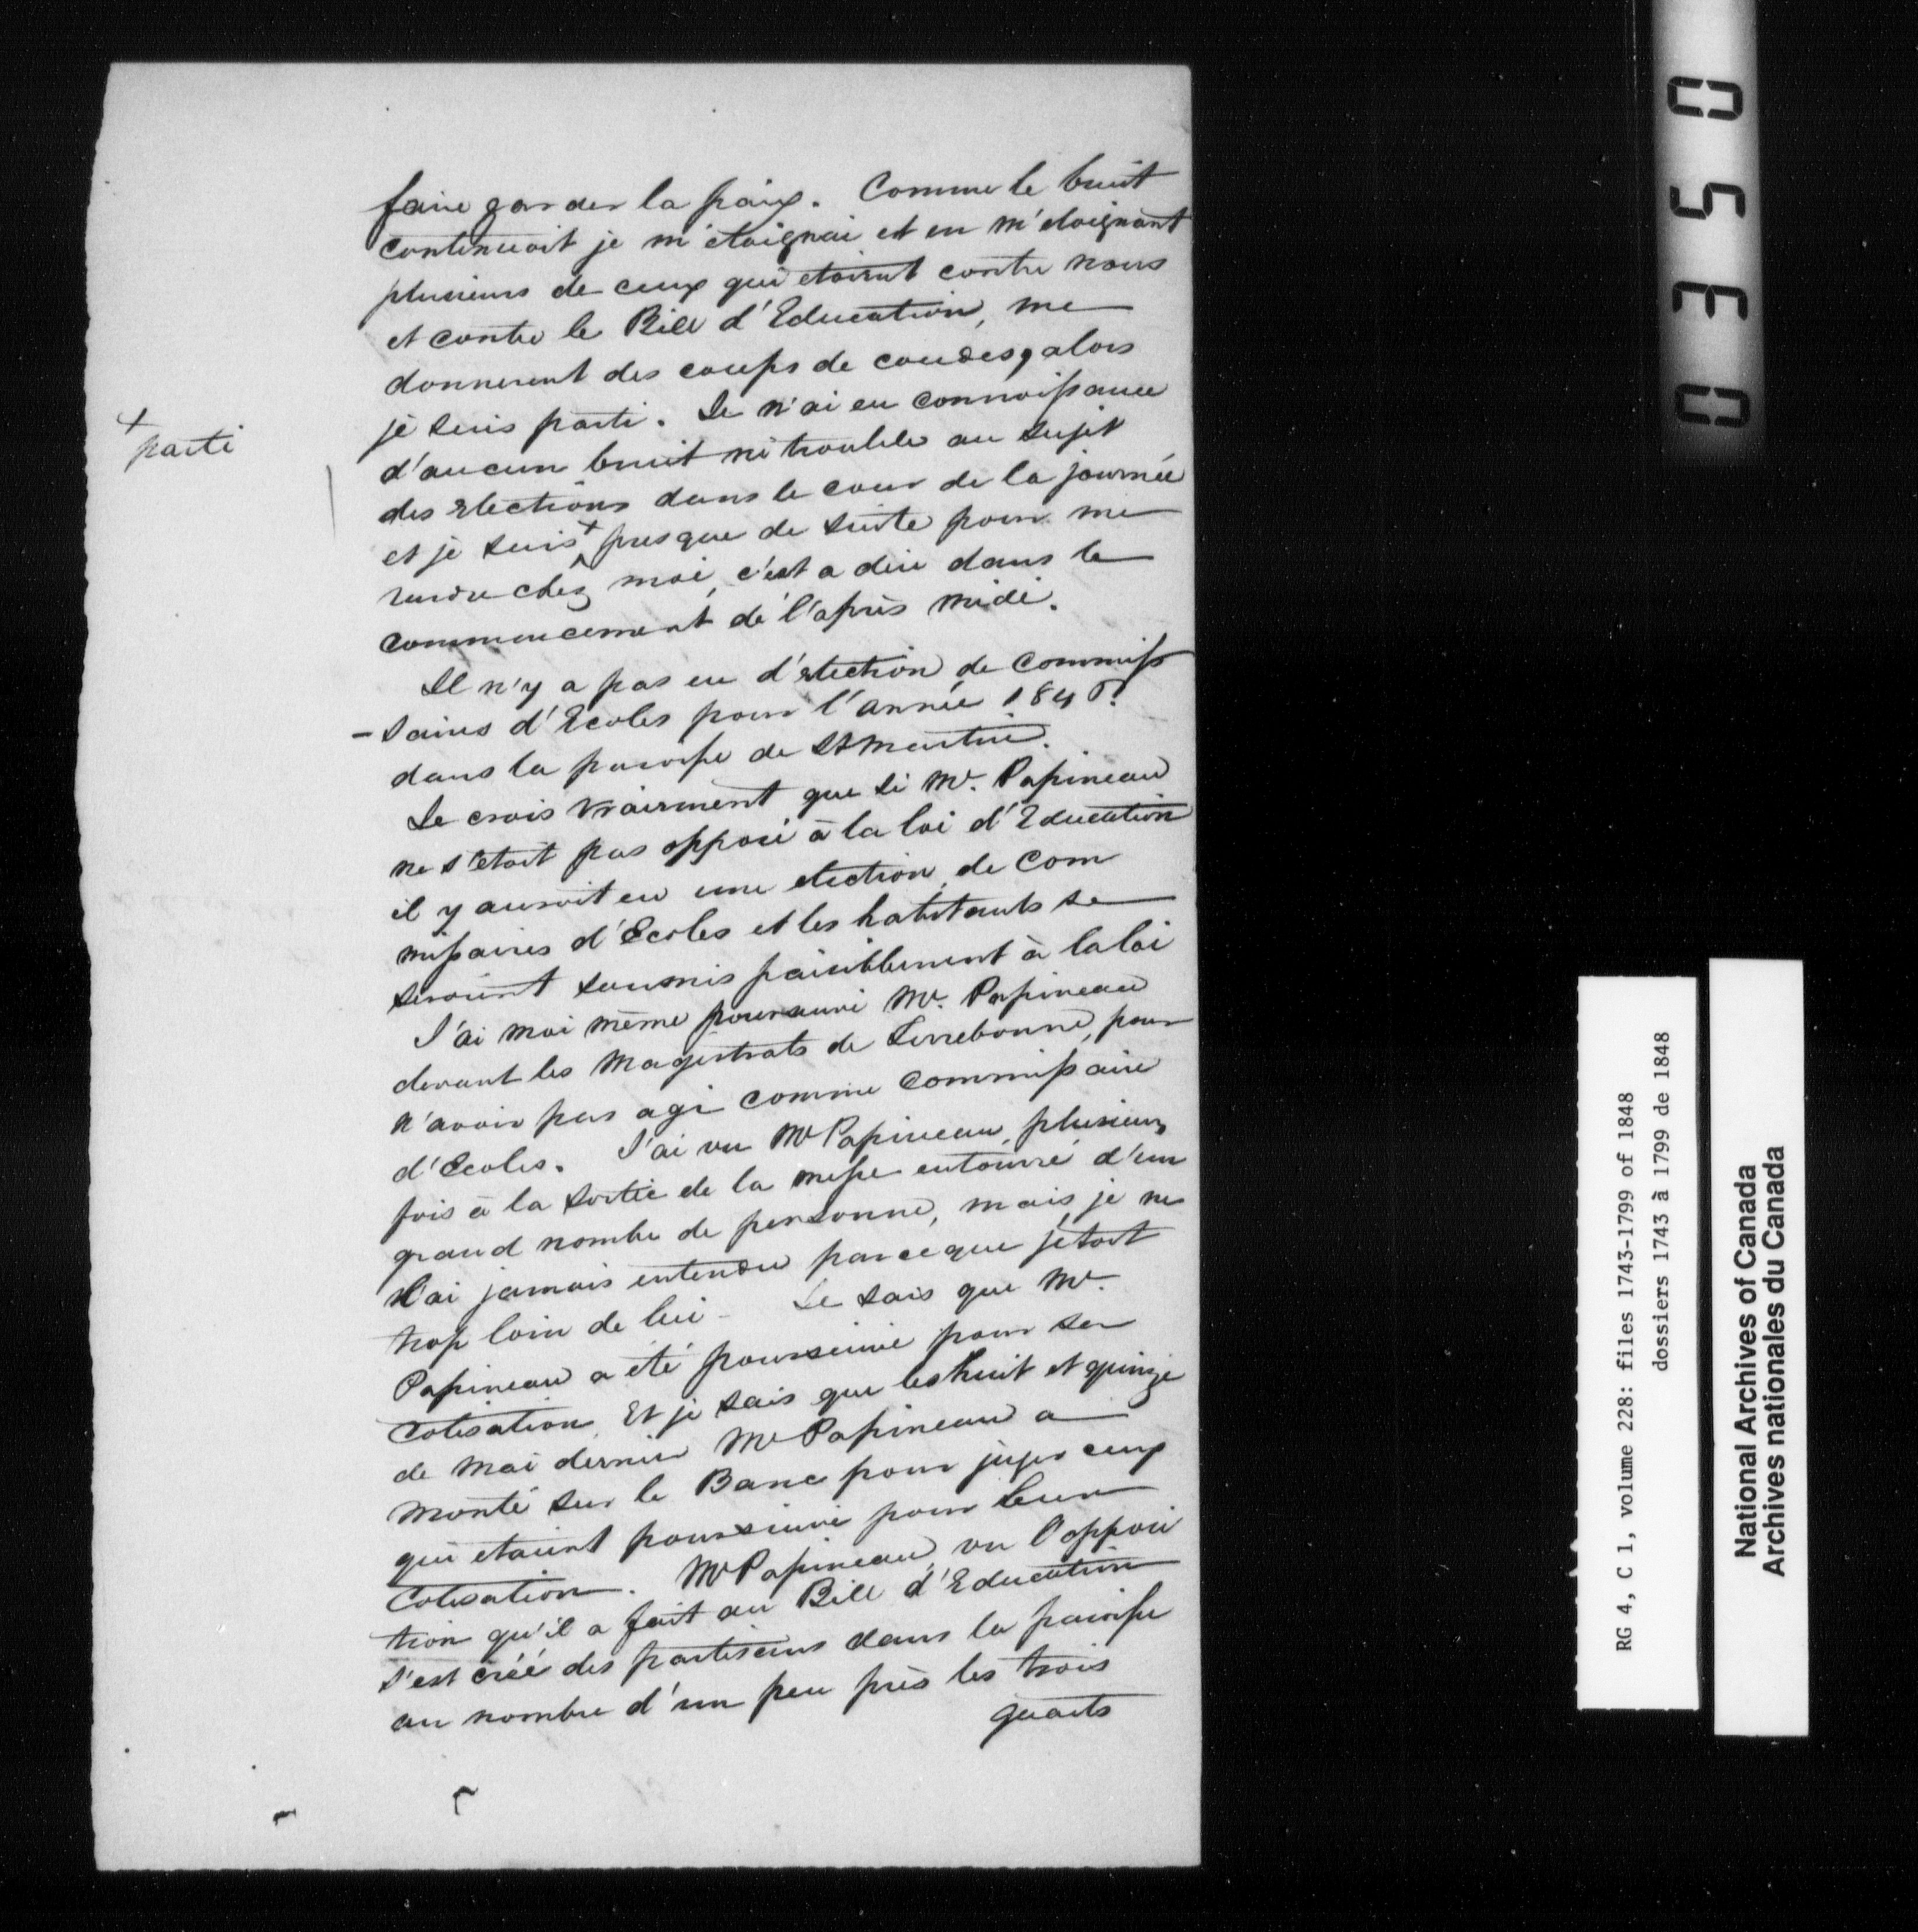 faire garder la paix. Comme le bruit
continuoit je m'eloignai et en m'eloignant
plusieurs de ceux qui etoient contre nous
et contre le Bill d'Education, me
donnerent des coups de coudes, alors
je suis parti. Je n'ai eu connoissance
d'aucun bruit ni trouble au sujet
des Elections dans le cour de la journée
+
parti
et je suis + presque de suite pour me
rendre chez moi, c'est a dire dans le
commencement de l'après midi.
Il n'y a pas eu d'élection de Commis
-saires d'Ecoles pour l'année 1846.
dans la paroisse de St Martin.
Je crois vraiment que si Mr. Papineau
ne s'etoit pas opposé à la loi d'Education
il y auroit eu une election de Com
missaires d'Ecoles et les habitants se
seroient soumis paisiblement à la loi
J'ai moi même poursuivi Mr. Papineau
devant les Magistrats de Terrebonne, pour
n'avoir pas agi comme Commissaire
d'Ecoles. J'ai vu Mr Papineau plusieurs
fois à la sortie de la messe entouré d'un
grand nombre de personne, mais je ne
l'ai jamais entendu parceque j'étois
trop loin de lui - Je sais que Mr.
Papineau a été poursuivi pour sa
Cotisation Et je sais que les huit et quinze
de Mai dernier Mr Papineau a
monté sur le Banc pour juger ceux
qui etaient poursuivi pour leur
Cotisation. Mr Papineau vu l'opposi
tion qu'il a fait au Bill d'Education
s'est créé des partisans dans la paroisse
au nombre d'un peu près les trois
quarts
0350
RG 4, C 1, volume 228: files 1743-1799 of 1848
dossiers 1743 à 1799 de 1848
National Archives of Canada
Archives nationales du Canada